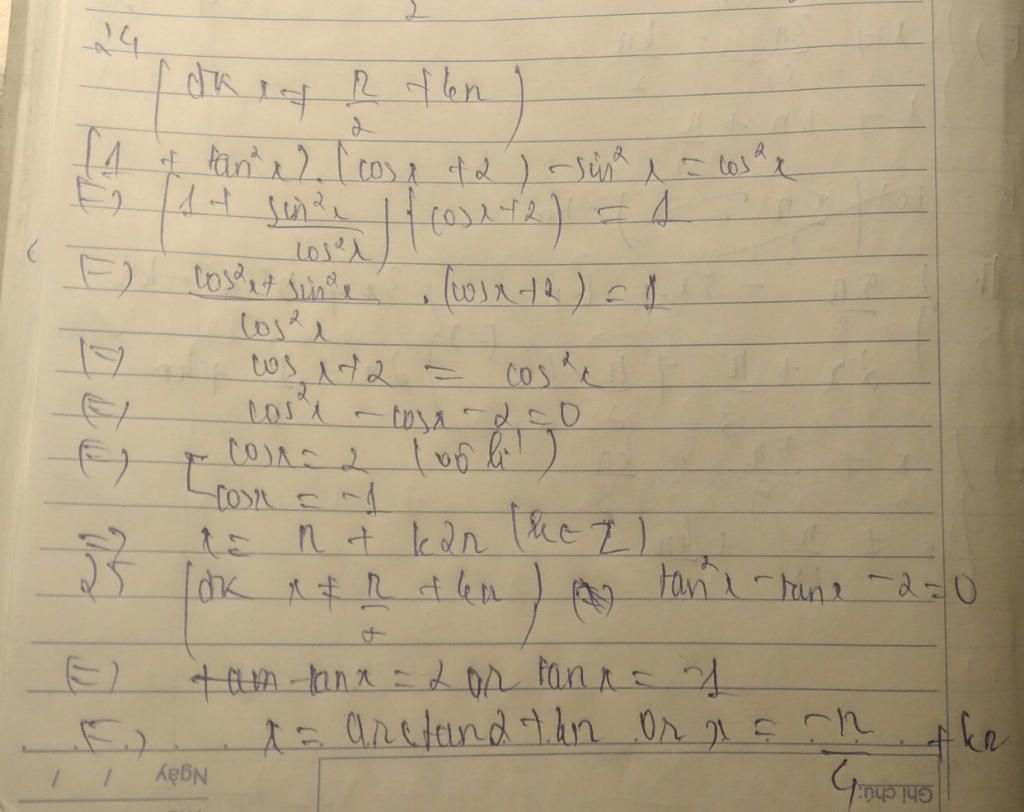 2
24
(đk x ≠ π/2 + kπ)
(1 + tan²x).(cosx + 2) - sin²x = cos²x
(=) (1 + sin²x/cos²x)(cosx+2) = 1
(=) (cos²x + sin²x)/cos²x . (cosx+2) = 1
(=) cosx+2 = cos²x
(=) cos²x - cosx - 2 = 0
(=) [ cosx = 2 (vô lí)
cosx = -1
=> x = π + k2π (k ∈ Z)
25 (đk x ≠ π/2 + kπ) tan²x - tanx - 2 = 0
(=) tanx = 2 or tanx = -1
(=) x = arctan2 + kπ or x = -π/4 + kπ
Ngày / /
Ghi chú: